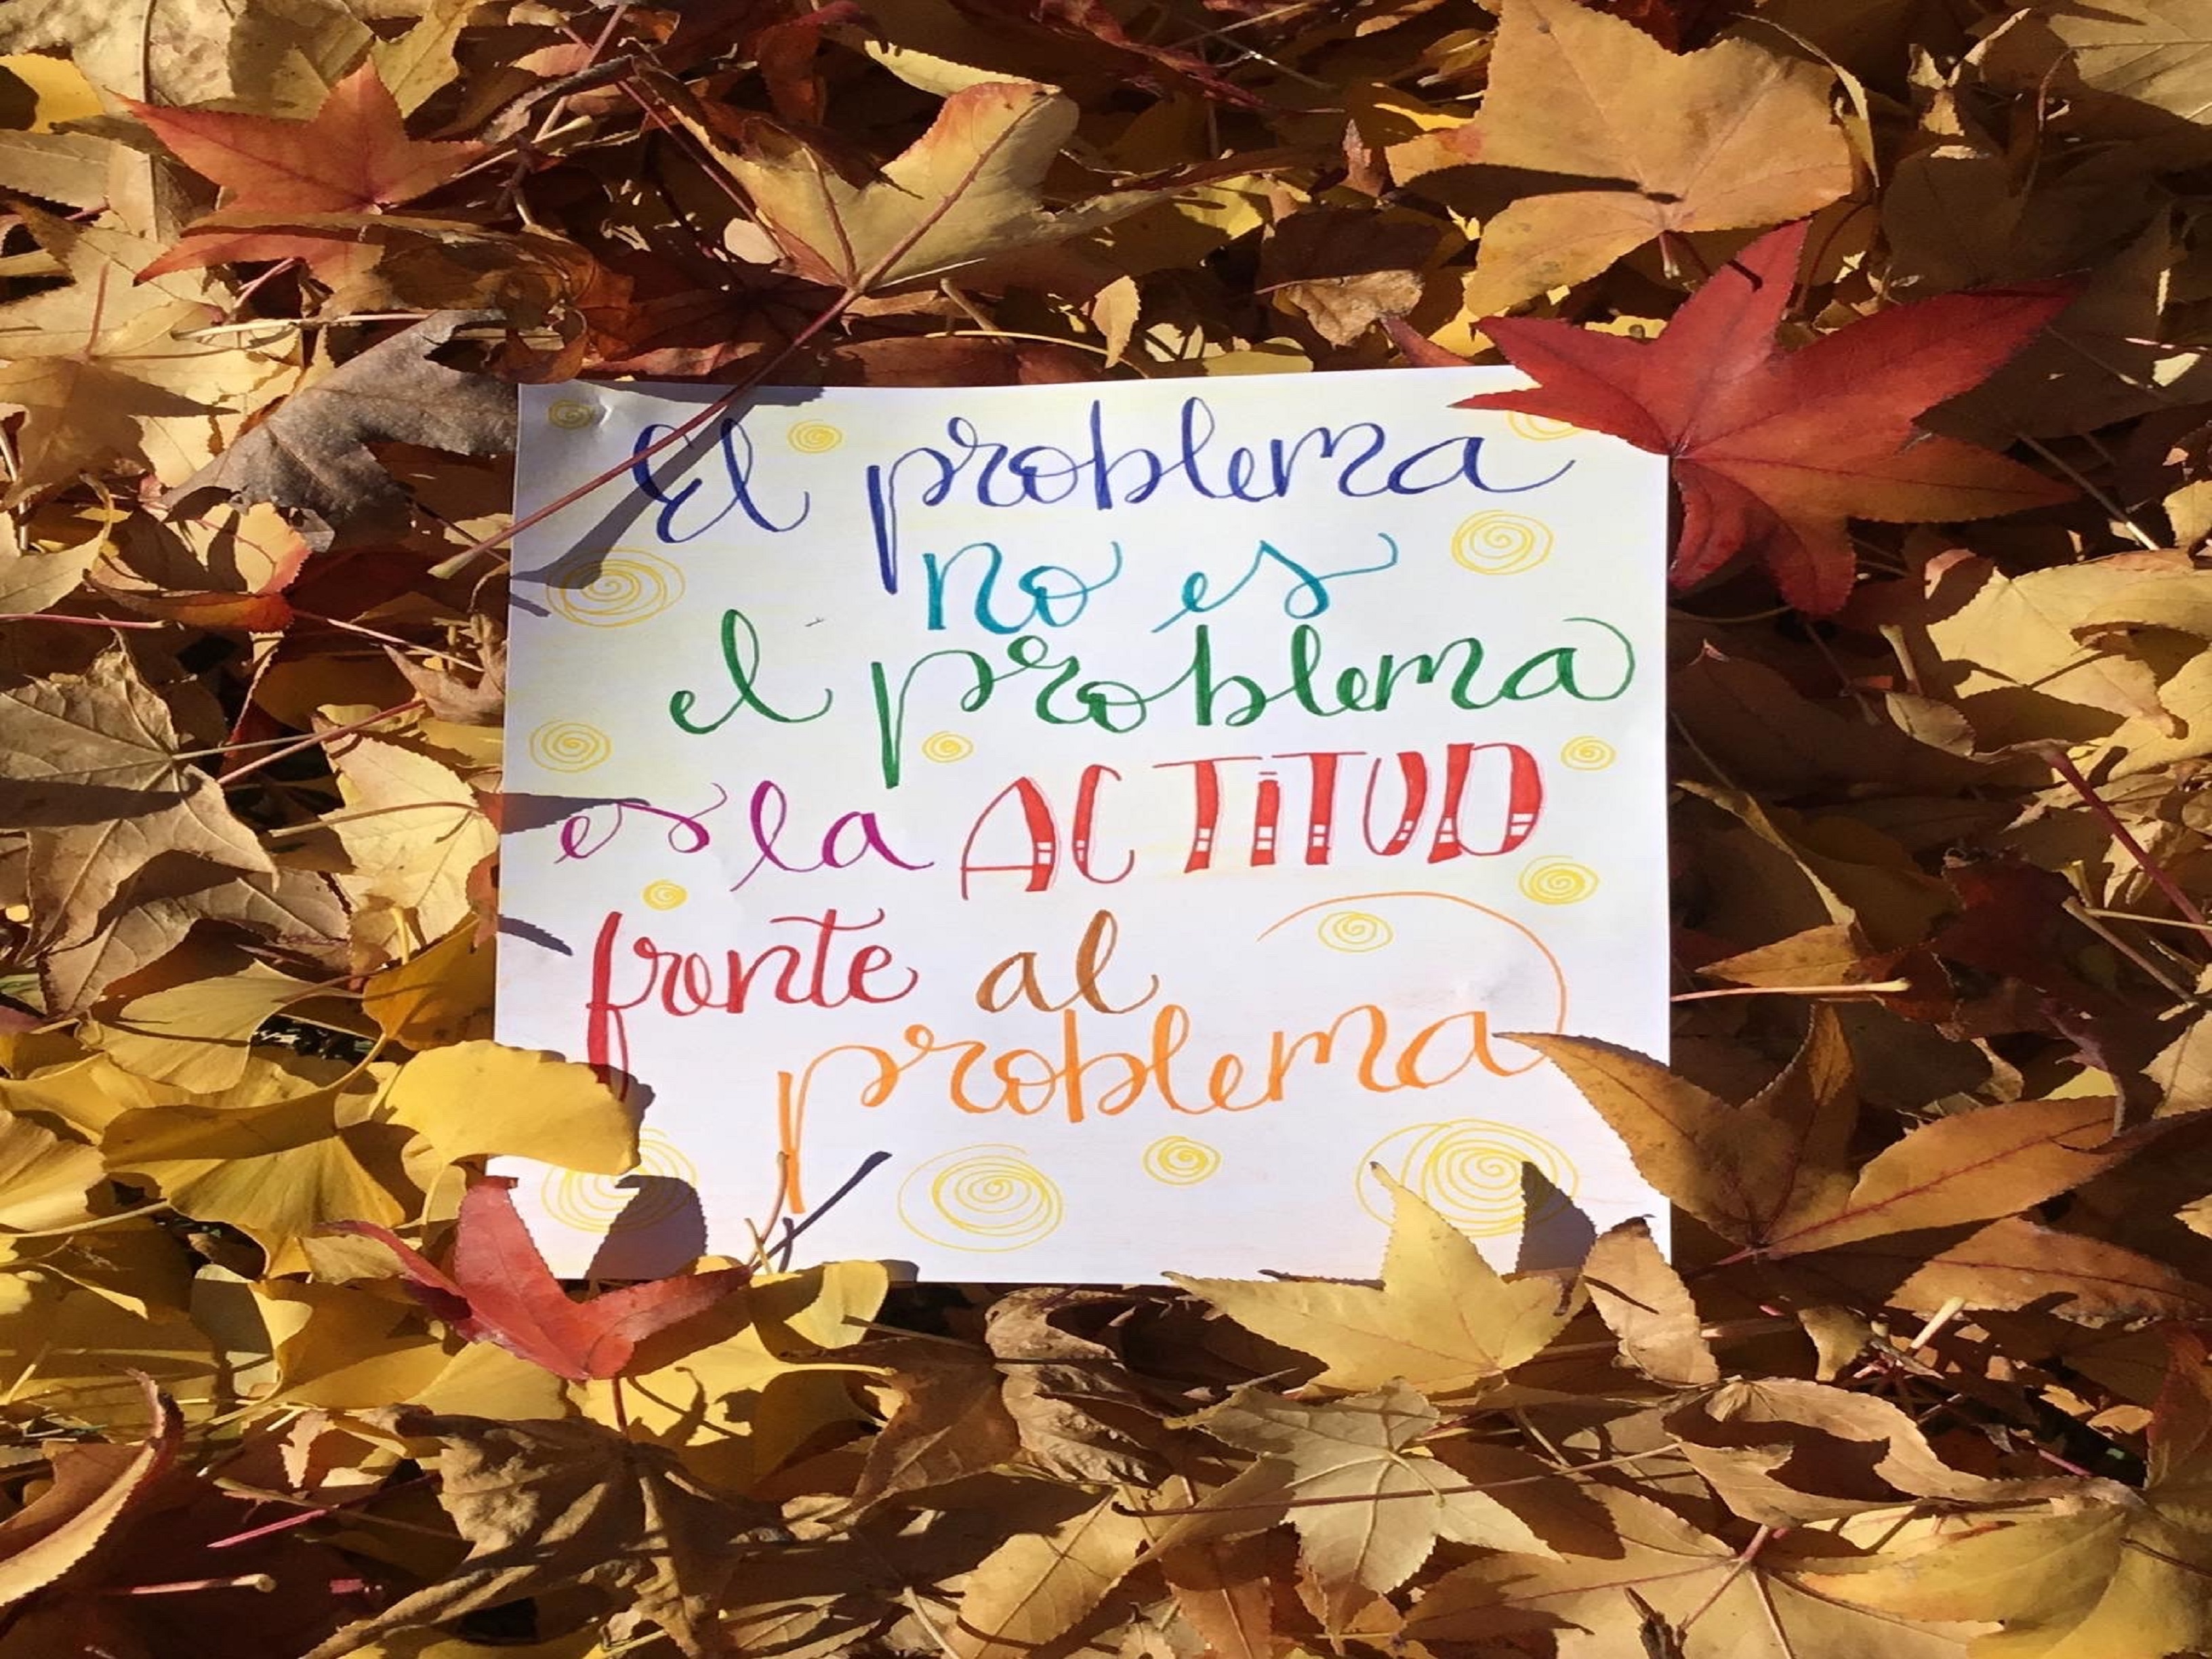 El problema
no es
el problema
es la ACTITUD
frente al
problema